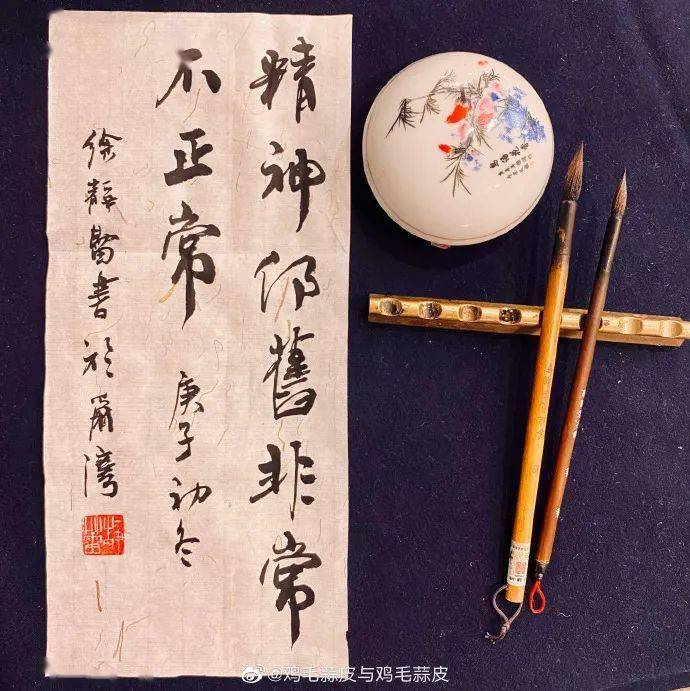 精神仍舊非常
不正常 庚子初冬
徐靜蕾書於灣
@鸡毛蒜皮与鸡毛蒜皮